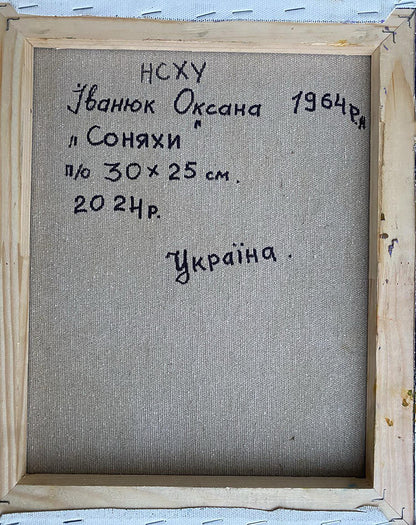 НСХУ
Іванюк Оксана 1964р.н
„Соняхи"
п/о 30×25 см.
2024р.
Україна.